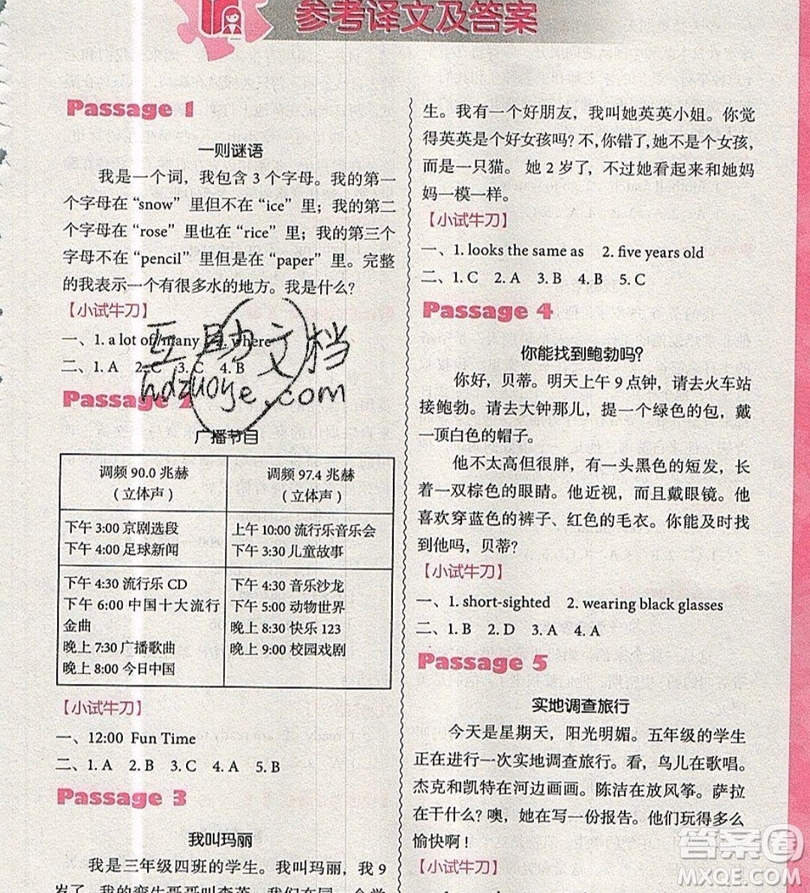 参考译文及答案
Passage 1
一则谜语
我是一个词，我包含 3 个字母。我的第一
个字母在 “snow” 里但不在 “ice” 里；我的第二
个字母在 “rose” 里也在 “rice” 里；我的第三个
字母不在 “pencil” 里但是在 “paper” 里。完整
的我表示一个有很多水的地方。我是什么?
【小试牛刀】
一、1. a lot of/many 2. where
二、1. A 2. C 3. C 4. B
Passage 2
广播节目
调频 90.0 兆赫
（立体声）
调频 97.4 兆赫
（立体声）
下午 3:00 京剧选段
下午 4:00 足球新闻
上午 10:00 流行乐音乐会
下午 3:30 儿童故事
下午 4:30 流行乐 CD
下午 6:00 中国十大流行
金曲
晚上 7:30 广播歌曲
晚上 8:00 今日中国
下午 4:30 音乐沙龙
下午 5:00 动物世界
晚上 8:30 快乐 123
晚上 9:00 校园戏剧
【小试牛刀】
一、12:00 Fun Time
二、1. A 2. B 3. A 4. A 5. B
Passage 3
我叫玛丽
我是三年级四班的学生。我叫玛丽，我 9
岁了。我的孪生哥哥叫李英。我们同在一个学
生。我有一个好朋友，我叫她英英小姐。你觉
得英英是个好女孩吗? 不, 你错了, 她不是个女孩,
而是一只猫。她 2 岁了，不过她看起来和她妈
妈一模一样。
【小试牛刀】
一、1. looks the same as 2. five years old
二、1. C 2. A 3. B 4. B 5. C
Passage 4
你能找到鲍勃吗?
你好，贝蒂。明天上午 9 点钟，请去火车站
接鲍勃。请去大钟那儿，提一个绿色的包，戴
一顶白色的帽子。
他不太高但很胖，有一头黑色的短发，长
着一双棕色的眼睛。他近视，而且戴眼镜。他
喜欢穿蓝色的裤子、红色的毛衣。你能及时找
到他吗，贝蒂?
【小试牛刀】
一、1. short-sighted 2. wearing black glasses
二、1. B 2. D 3. A 4. A
Passage 5
实地调查旅行
今天是星期天，阳光明媚。五年级的学生
正在进行一次实地调查旅行。看，鸟儿在歌唱。
杰克和凯特在河边画画。陈洁在放风筝。萨拉
在干什么? 噢，她正在写一份报告。他们玩得多么
愉快啊!
【小试牛刀】
互助文档
hdzuoye.com
答案圈
MXQE.COM